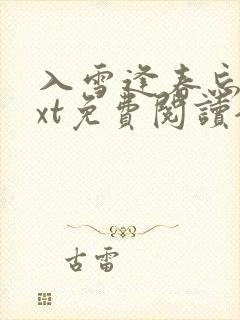 入雪逢春忘
xt免費閱讀
古雷